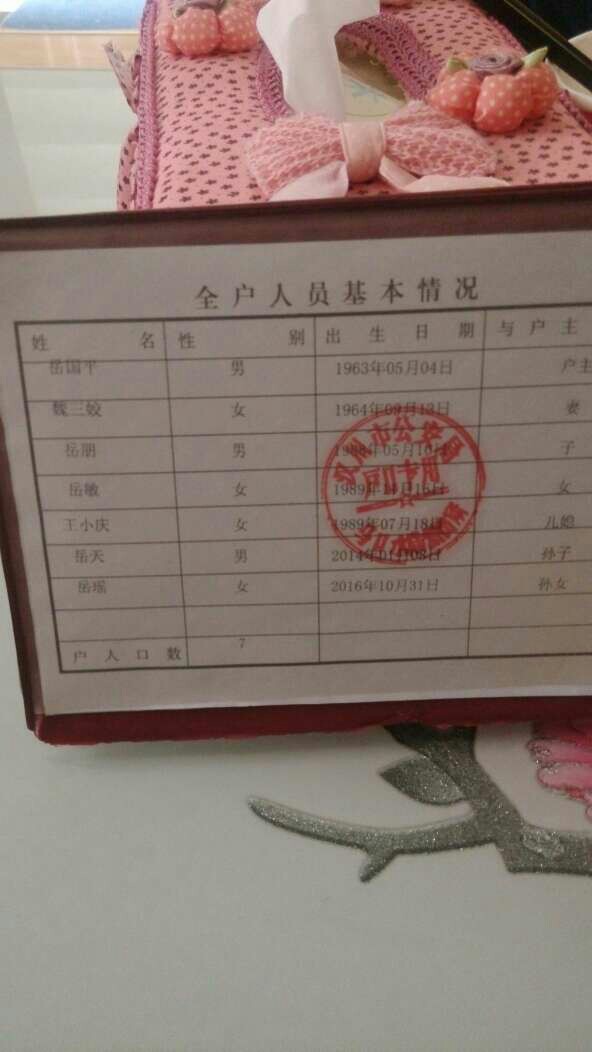 全户人员基本情况
姓名 性别 出生日期 与户主
岳国平 男 1963年05月04日 户主
魏三姣 女 1964年09月13日 妻
岳朋 男 1988年05月10日 子
岳敏 女 1989年11月16日 女
王小庆 女 1989年07月18日 儿媳
岳天 男 2014年01月08日 孙子
岳瑶 女 2016年10月31日 孙女
户人口数 7
市公安局
户口专用